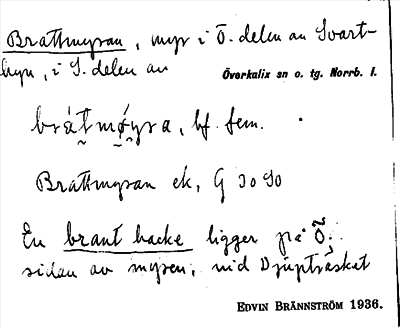 Brattmyran, myr i Ö. delen av Svart-
byn, i S. delen av
Överkalix sn o. tg. Norrb. l.
bràt̬mǿyra, bf. fem.
Brattmyran ek, G 30 S0
En brant backe ligger på Ö.
sidan av myren, vid Djupträsket
EDVIN BRÄNNSTRÖM 1936.